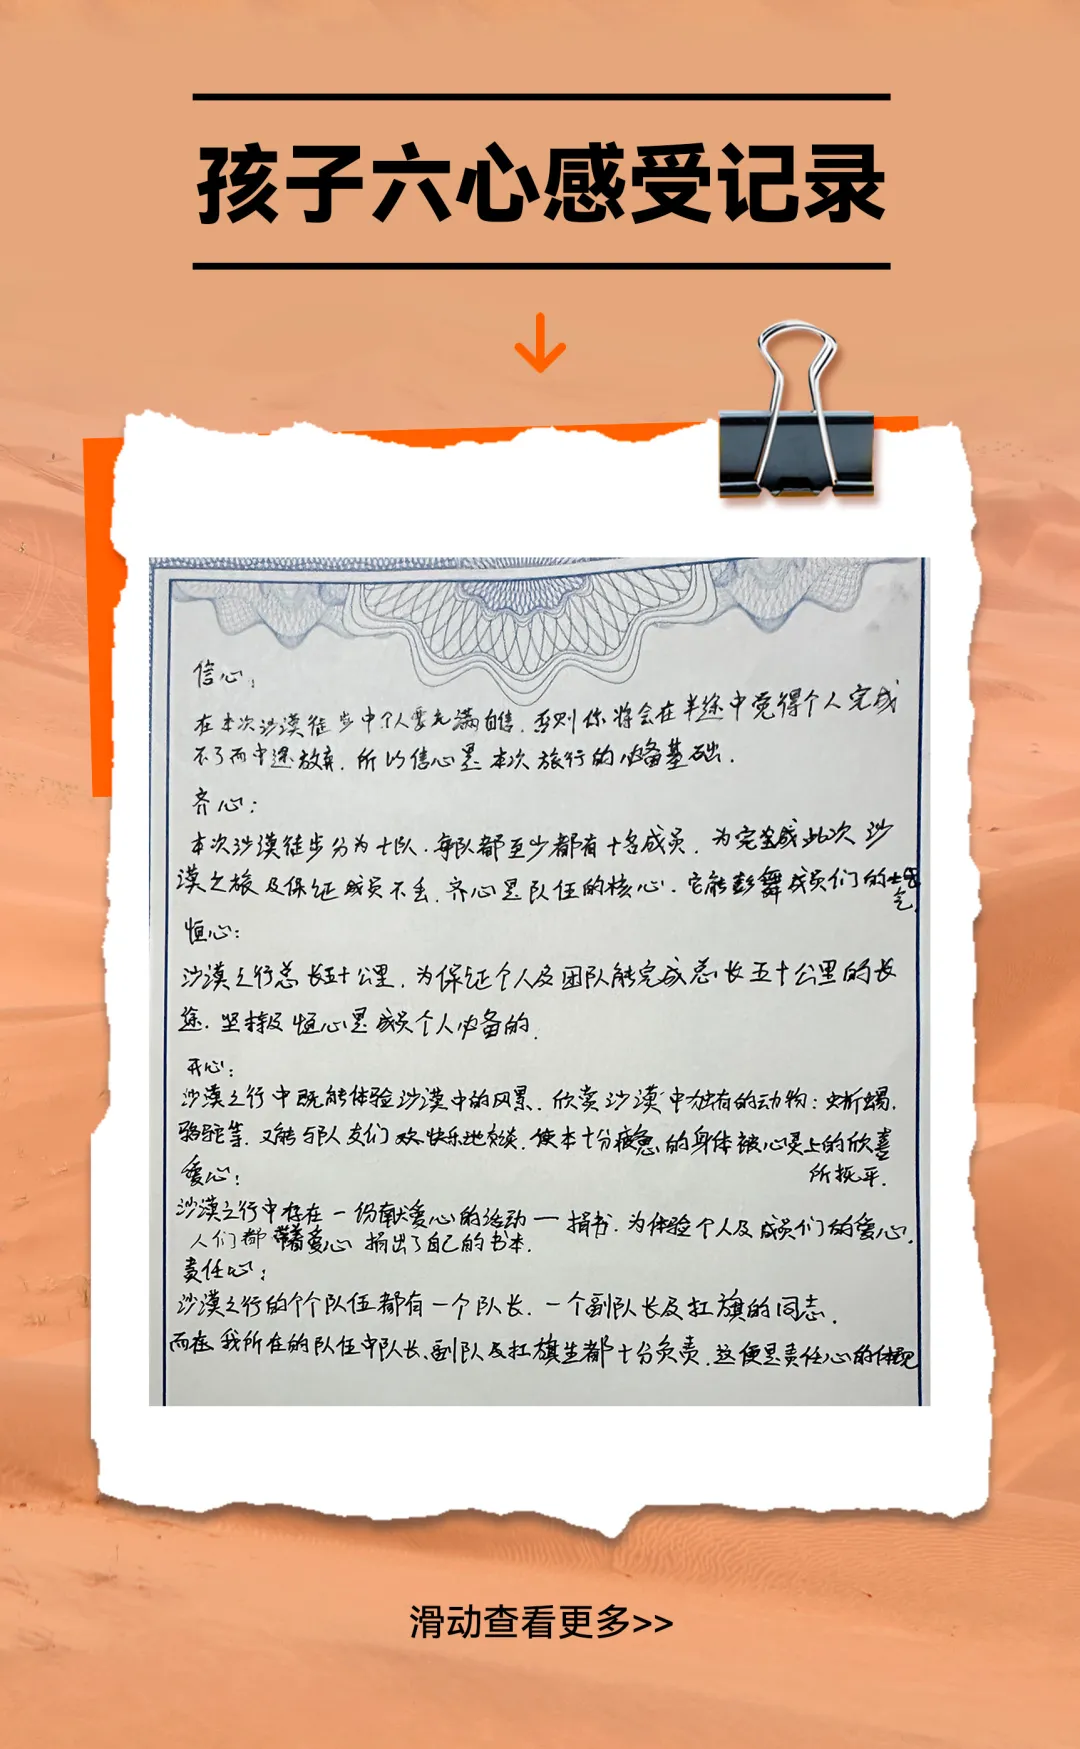 孩子六心感受记录
信心:
在本次沙漠徒步中个人要充满自信,否则你将会在半途中觉得个人完成
不了而中途放弃.所以信心是本次旅行的必备基础.
齐心:
本次沙漠徒步分为七队.每队都至少都有十名成员,为完成此次沙
漠之旅及保证成员不丢,齐心是队伍的核心.它能彭舞成员们的士
气
恒心:
沙漠之行总长五十公里,为保证个人及团队能完成总长五十公里的长
途.坚持及恒心是成员个人必备的.
开心:
沙漠之行中既能体验沙漠中的风景.欣赏沙漠中独有的动物:蜥蝎.
骆驼等.又能与队友们欢快乐地交谈.使本十分疲惫的身体被心灵上的欣喜
所抚平.
爱心:
沙漠之行中存在一份献爱心的活动一捐书.为体验个人及成员们的爱心.
人们都带着爱心捐出了自己的书本.
责任心:
沙漠之行的个个队伍都有一个队长.一个副队长及扛旗的同志.
而在我所在的队伍中队长、副队及扛旗生都十分负责.这便是责任心的体现
滑动查看更多>>